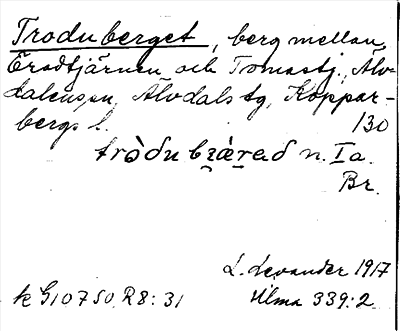 Troduberget, berg mellan
Erastjärnen och Tomastj., Älv-
dalens sn, Älvdals tg, Koppar-
bergs l. 130
tròdu bærɛd n. Ia.
Br.
L. Levander 1917
k G10750 R8: 31 Ulma 339:2